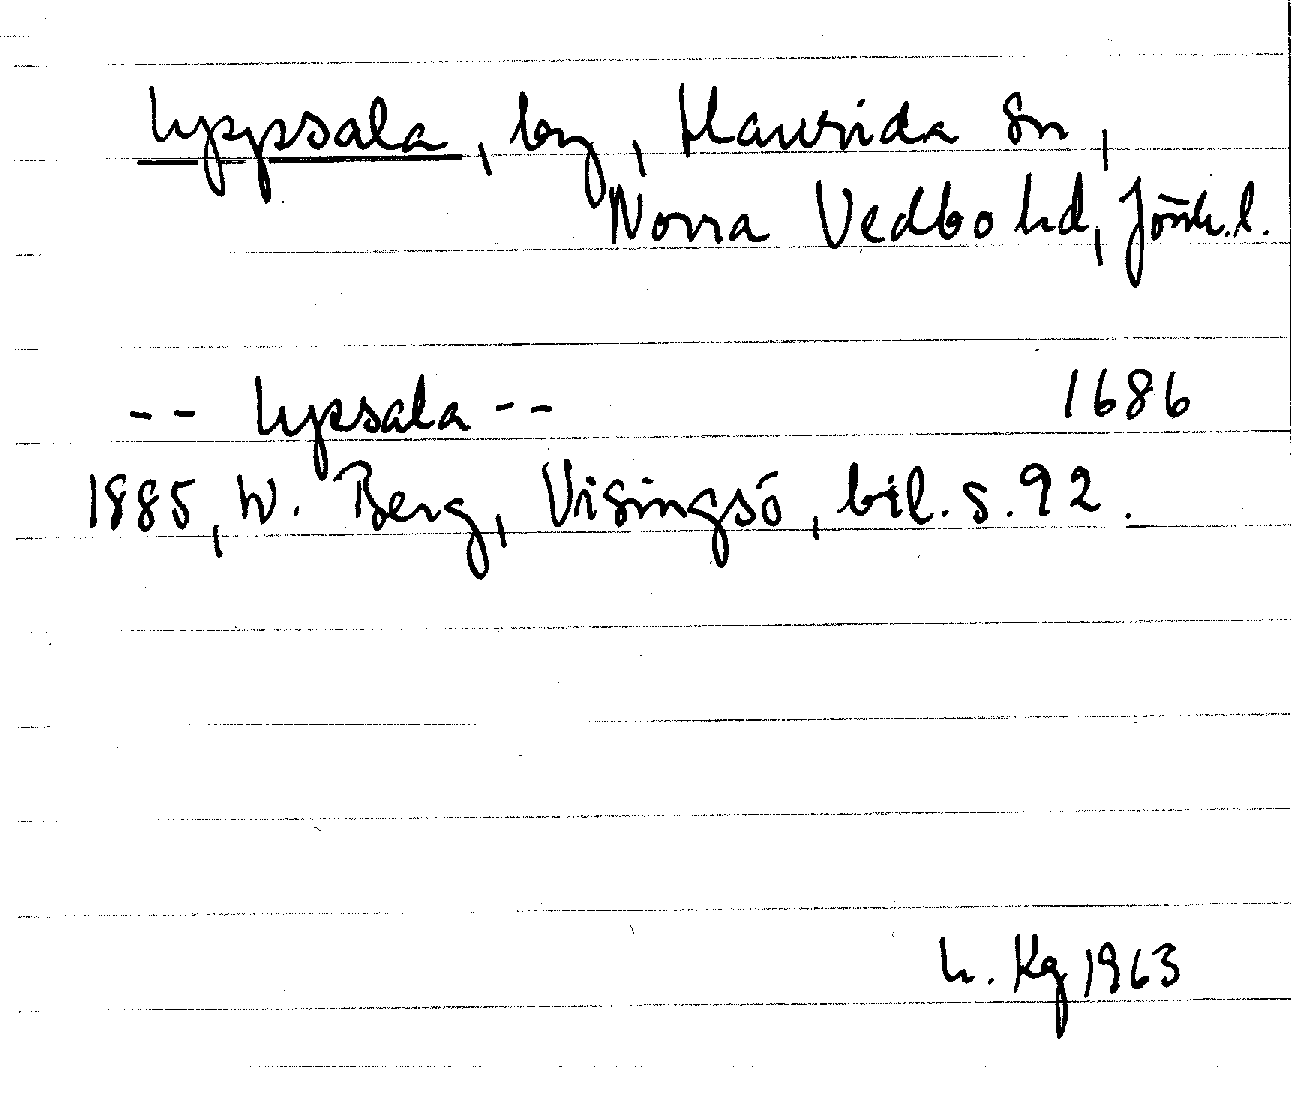 Uppsala, by, Haurida sn,
Norra Vedbo hd, Jönk.l.
-- Upsala -- 1686
1885, W. Berg, Visingsö, bil. s. 92.
Kg 1963